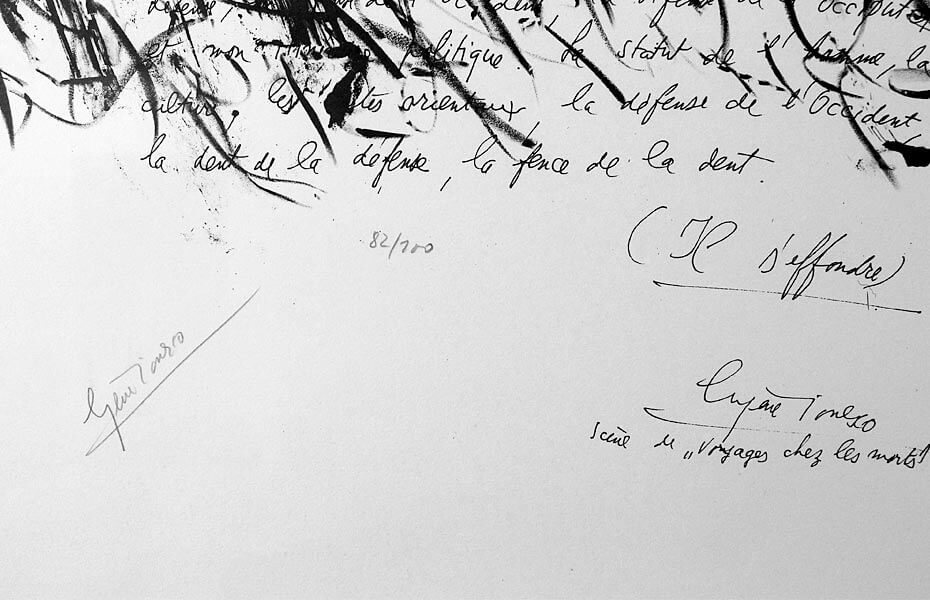 défense, de l'Occident la défense de l'Occident
et mon politique. Le statut de l'homme, la
culture, les orientaux, la défense de l'Occident
la dent de la défense, la fence de la dent.
(Il s'effondre)
82/100
Eugène Ionesco
Eugène Ionesco
Scène de „Voyages chez les morts"